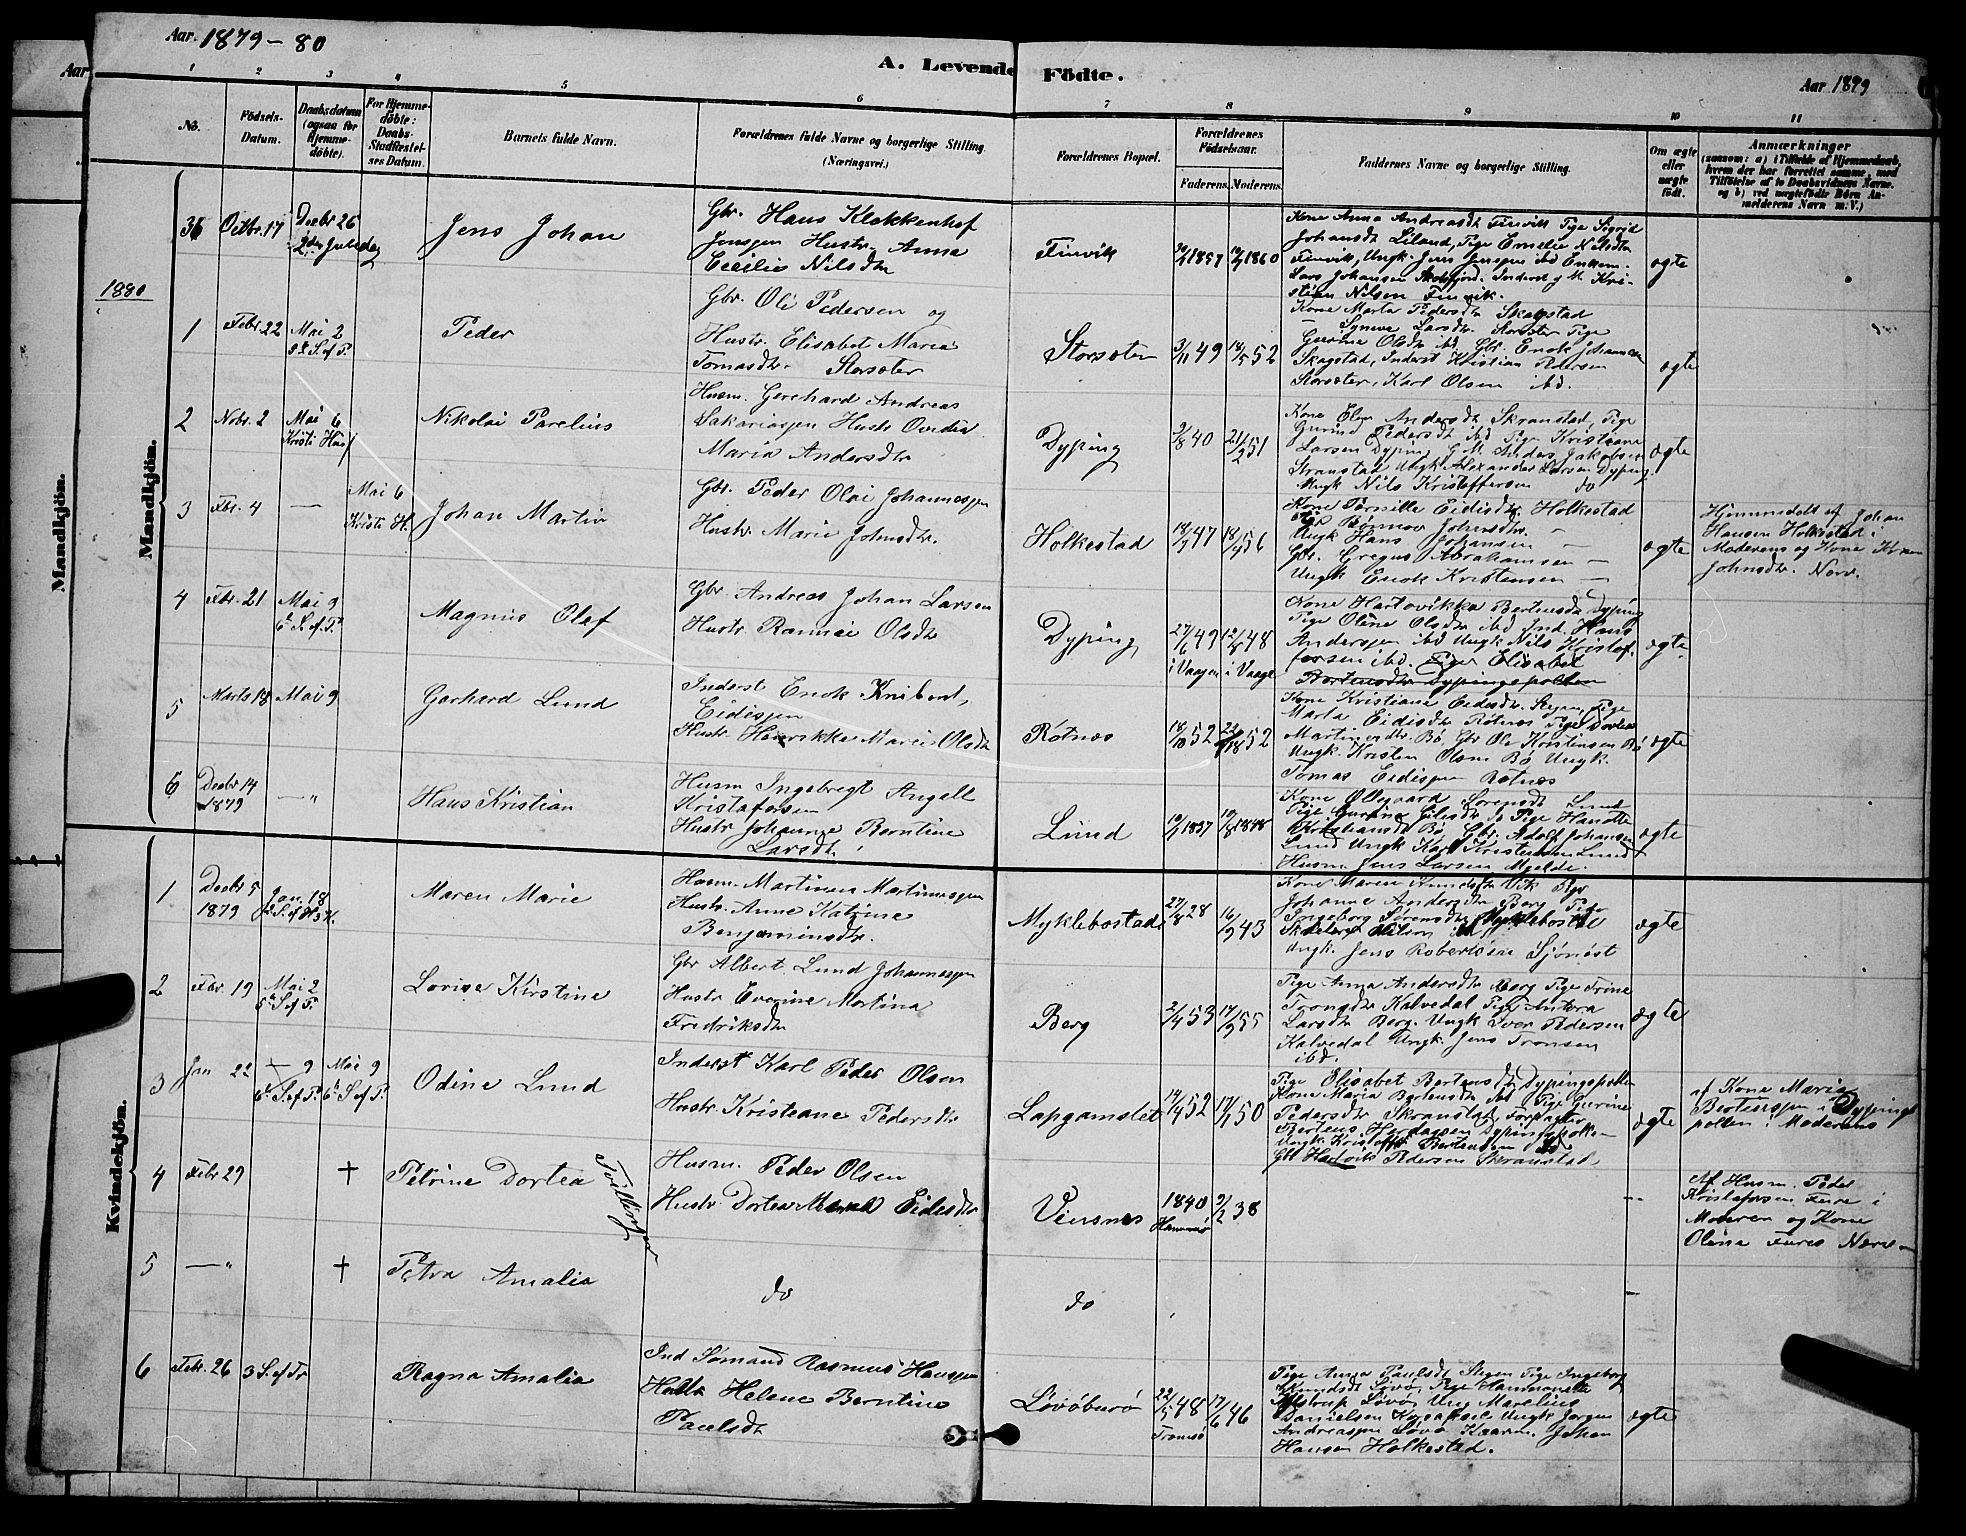 Aar. 1879-80
A. Levende Födte.
Aar 1879
Aar
1 2 3 4 5 6 7 8 9 10 11
No.
Födsels-Datum.
Daabsdatum (ogsaa for Hjemme-døbte).
For Hjemme-døbte: Daabs-Stadfæstel-ses Datum.
Barnets fulde Navn.
Forældrenes fulde Navne og borgerlige Stilling (Næringsvei.)
Forældrenes Bopæl.
Forældrenes Födselsaar.
Faderens. Moderens.
Faddernes Navne og borgerlige Stilling.
Om ægte eller uægte født.
Anmærkninger
(saasom: a) i Tilfælde af Hjemmedaab, hvem der har forrettet samme, med Tilføielse af to Daabsvidners Navne, og b) ved uægtefødte Børn An-melderens Navn m.V.)
Mandkjön.
Mandkjön.
36 Octbr. 17 Decbr 26 2den Juledag
Jens Johan
Gbr. Hans Klokkenhof
Jensen Hustr. Anna
Cecilie Nilsdtr
Finvik
1857 1860
Kone Anna Andreasdtr Finvik Pige Sigrid
Johansdtr Liland, Pige Emelie Nilsdtr
Finvik, Ungk. Jens Jensen ibd Enkem.
Lars Johansen Inderst g M. Kri-
stian Nilsen Finvik.
ægte
1880
1 Febr. 22 Mai 2 5te S. ef P.
Peder
Gbr. Ole Pedersen og
Hustr. Elisabet Maria
Tomasdtr. Storsæter
Storsæter
3/11 49 18/5 52
Kone Marta Pedersdtr Skagstad
Synnva Larsdtr. Storsæter Pige
Gurine Olsdtr ibd. Gbr. Enok Johannesen
Skagstad, Inderst Kristian Pedersen
Storsæter, Karl Olsen ibd.
ægte
2 Nobr. 2 Mai 6 Kristi Himf
Nikolai Parelius
Husm. Gerchard Andreas
Sakariassen Hustr Ovedia
Maria Andersdtr
Dyping
2/8 40 21/2 51
Kone Elen Andersdtr Skranstad, Pige
Gurine Pedersdtr ibd Pige Kristiane
Larsen Dyping G.M. Anders Jakobsen
Skranstad Ungk Alexander Larsen Dyping
Ungk Nils Kristoffersen do
ægte
3 Fbr. 4 — Mai 6 Kristi H.
Johan Martin
Gbr. Peder Olai Johannessen
Hustr. Marie Johnsdtr.
Holkestad
18/7 47 18/4 56
Kone Pernille Eidisdtr. Holkestad
Pige Rønnou Johnsdtr. —
Ungk Hans Johansen —
Gbr. Gregus Abrahamsen —
Ungk Enok Kristensen —
ægte
Hjemmedøbt af Johan
Hansen Holkestad i
Moderens og Kone Karen
Johnsdtr. Nærv.
4 Fbr. 21 Mai 9 6te S. ef. P.
Magnus Olaf
Gbr. Andreas Johan Larsen
Hustr. Rannai Olsdtr
Dyping
27/6 49 12/8 48
i Vaagen i Vaage
Kone Hartovikka Bertensdtr Dyping
Pige Oline Olsdtr ibd Ind. Hans
Andersen ibd Ungk. Nils Kristof-
fersen ibd. Pige Elisabet
Bertensdtr Dypingspollen
ægte
5 Marts 18 Mai 9
Gerhard Lund
Inderst Enok Knibert
Eidissen
Hustr. Henrikka Maria Olsdtr
Røtnes
18/10 52 22/18 52
Kone Kristiane Eidisdtr. Steen, Pige
Marta Eidisdtr Røtnes Pige Dortea
Martinesdtr. Bø Gbr Ole Kristensen Bø
Ungk. Kristen Olsen Bø Ungk.
Tomas Eidissen Røtnes
ægte
6 Decbr 14 1879 — "
Hans Kristian
Husm Ingebregt Angell
Kristofersen
Hustr. Johanna Berntine
Larsdtr
Lund
1837 1848
Kone Ollegaard Sørensdtr Lund
Pige Gurine Eilisdtr do Pige Hanotte
Kristiansdtr Bø, Gbr. Adolf Johansen
Lund Ungk Karl Kristensen Lund
Husm. Jens Larsen Myelde.
ægte
Kvindekjön.
1 Decbr 5 1879 Jan. 18 2 S. ef H3K.
Maren Marie
Husm. Martinus Martinussen
Hustr. Anne Katrine
Benjaminsdtr.
Myklebostad
27/8 28 16/9 43
Kone Maren Amundsdtr Vik Pige
Johanne Andersdtr Berg Pige
Ingeborg Sørensdtr Myklebostad
Ungk. Jens Robertsen Sjönöst
ægte
2 Fbr. 19 Mai 2 5te S. ef P.
Lovise Kirstine
Gbr Albert Lund Johannessen
Hustr Evarine Martina
Fredriksdtr
Berg
2/4 53 17/9 55
Pige Anna Andersdtr Berg Pige Trine
Tronsdtr Kalvedal Pige Antora
Larsdtr Berg. Ungk Iver Pedersen
Kalvedal Ungk. Jens Tronsen
ibd.
ægte
3 Jan 22 9 6te S. ef P. Mai 9 6te S. ef P.
Odine Lund
Inderst Karl Peder Olsen
Hustr. Kristiane Pedersdtr
Lapgamslet
14/4 52 17/1 50
Pige Elisabet Bertensdtr Dypingspollen
Kone Maria Bertensdtr ibd Pige Gurine
Pedersdtr Skranstad Forpagter
Bertens Hardassen Dypingspollen
Ungk. Kristoffer Bertensen ibd
Gbr Hartvik Pedersen Skranstad
ægte
af Kone Maria
Bertinssen i Dypings
pollen i Moderens
4 Febr 29 †
Petrine Dortea
Tvillinger
Husm. Peder Olsen
Hustr Dortea Marek Eidisdtr
Vinsnes
1840 2/2 38
Hammerö
—
Af Husm. Peder
Kristofersen Fure i
Moderen og Kone
Oline Fures Nærv —
5 — " †
Petra Amalia
do
do
—
6 Febr. 26 3 S. ef Tr
Ragna Amalia
Ind Sømand Rasmus Hansen
Helene Berntine
Paulsdtr
Løvöburö
22/5 48 17/6 46
Tromsö
Pige Anna Paulsdtr Stegen Pige Ingeborg
Knudsdtr Løvö, Pige
Alstrup Løvö, Ung Marelius
Danielsen Ungk Jørgen
Andreassen Løvö Kaarm. Johan
Hansen Holkestad.
ægte